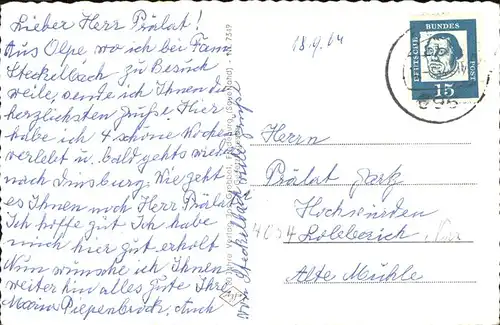 Lieber Herr Prälat!
Aus Olpe wo ich bei Fam
Steckelbach zu Besuch
weile, sende ich Ihnen die
herzlichsten Grüße. Hier
habe ich 4 schöne Wochen
verlebt u. bald gehts wieder
nach Duisburg. Wie geht
es Ihnen noch Herr Prälat
Ich hoffe gut. Ich habe
mich hier gut erholt
Nun wünsche ich Ihnen
weiter hin alles Gute Ihre
Maria Piepenbrock, Auch
von Steckelbach viele
18.9.64
DEUTSCHE BUNDES POST
15
Herrn
Prälat
Hochwürden
4054
Alte Mühle
Nr. 7319